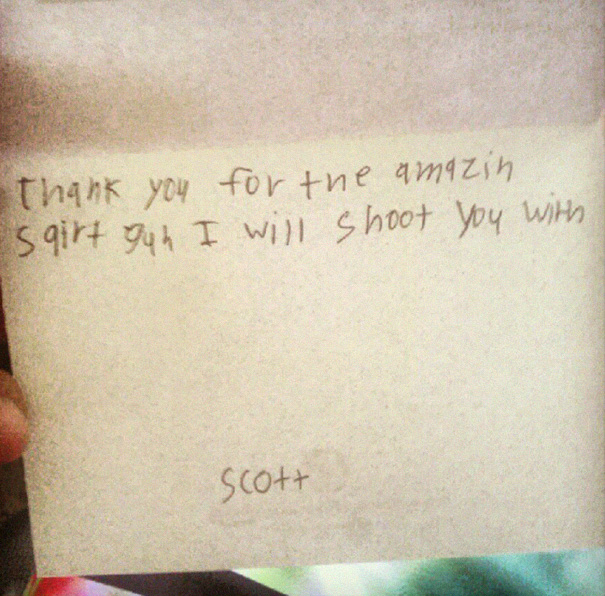 thank you for the amazin
sqirt gun I will shoot you with
scott